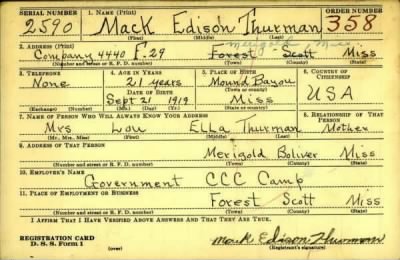 SERIAL NUMBER 1. NAME (Print) ORDER NUMBER
2590 Mack Edison Thurman 358
(First) (Middle) (Last)
2. ADDRESS (Print) Merigold Miss
Company 4440 F.29 Forest Scott Miss
(Number and street or R. F. D. number) (Town) (County) (State)
3. TELEPHONE 4. AGE IN YEARS 5. PLACE OF BIRTH 6. COUNTRY OF CITIZENSHIP
None 21 years Mound Bayou
DATE OF BIRTH (Town or county)
Sept 21 1919 Miss USA
(Exchange) (Number) (Mo.) (Day) (Yr.) (State or country)
7. NAME OF PERSON WHO WILL ALWAYS KNOW YOUR ADDRESS 8. RELATIONSHIP OF THAT PERSON
Mrs Lou Ella Thurman Mother
(Mr., Mrs., Miss) (First) (Middle) (Last)
9. ADDRESS OF THAT PERSON
Merigold Boliver Miss
(Number and street or R. F. D. number) (Town) (County) (State)
10. EMPLOYER'S NAME
Government CCC Camp
11. PLACE OF EMPLOYMENT OR BUSINESS
Forest Scott Miss
(Number and street or R. F. D. number) (Town) (County) (State)
I AFFIRM THAT I HAVE VERIFIED ABOVE ANSWERS AND THAT THEY ARE TRUE.
REGISTRATION CARD
D. S. S. Form 1 (over) Mack Edison Thurman
(Registrant's signature)